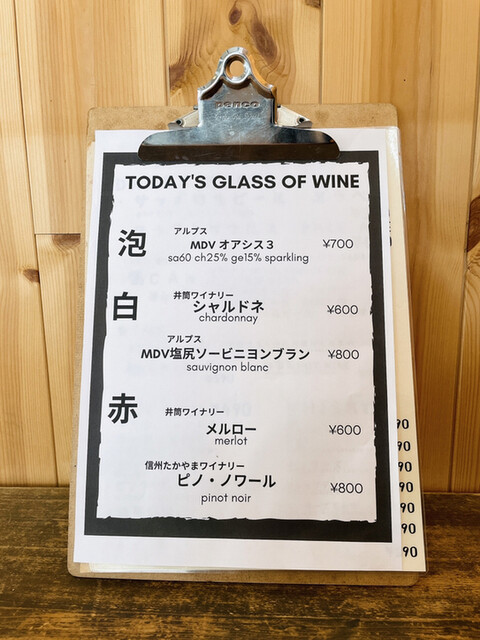 penco
TODAY'S GLASS OF WINE
泡
アルプス
MDV オアシス３ ¥700
sa60 ch25% ge15% sparkling
白
井筒ワイナリー
シャルドネ ¥600
chardonnay
アルプス
MDV塩尻ソービニヨンブラン ¥800
sauvignon blanc
赤
井筒ワイナリー
メルロー ¥600
merlot
信州たかやまワイナリー
ピノ・ノワール ¥800
pinot noir
90
90
90
90
90
90
90